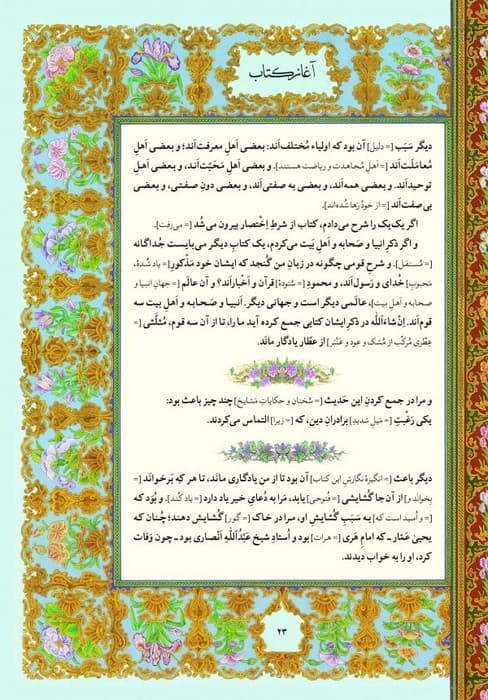 آغاز کتاب
دیگر سَبَب [= دلیل] آن بود که اولیاء مُختلف‌اَند: بعضی اَهلِ معرفت‌اَند؛ و بعضی اَهلِ
مُعاملَت‌اَند [= اَهلِ مُجاهدت و ریاضت هستند]. و بعضی اَهلِ مَحَبّت‌اَند، و بعضی اَهلِ
توحیداَند. و بعضی همه‌اَند، و بعضی به صفتی‌اَند، و بعضی دونِ صفتی، و بعضی
بی‌صفت‌اَند [= از خودْ رَها شُده‌اند].
اگر یک‌یک را شرح می‌دادم، کتاب از شرطِ اِختصار بیرون می‌شُد [= می‌رفت].
و اگر ذکرِ انبیا و صَحابه و اَهلِ بَیت می‌کردم، یک کتابِ دیگر می‌بایست جُداگانه
[= مُستقل]. و شرحِ قومی چگونه در زبانِ من گُنجد که ایشان خود مَذکورِ [= یاد شُدهٔ،
محبوبِ] خُدای و رَسول‌اَند، و محمودِ [= سُتودهٔ] قرآن و اَخباراَند؟ و آن عالَم [= جهانِ انبیا و
صحابه و اهل بیت]، عالَمی دیگر است و جهانی دیگر. اَنبیا و صَحابه و اَهلِ بیت سه
قوم‌اَند. اِن‌شاءَاللّه در ذکرِ ایشان کتابی جمع کرده آید ما را، تا از آن سه قوم، مُثَلَّثی [=
عِطری مُرکّب از مُشک و عود و عَنْبَر] از عطّار یادگار مانَد.
و مرا در جمع کردنِ این حَدیث [= سُخنان و حکایاتِ مَشایخ] چند چیز باعث بود:
یکی رَغْبَتِ [= مَیلِ شدیدِ] برادرانِ دین، که [= زیرا] التماس می‌کردند.
دیگر باعث [= انگیزهٔ نگارشِ این کتاب] آن بود تا از من یادگاری مانَد، تا هر که بَرخوانَد [=
بِخوانَد و] از آن جا گُشایشی [= فُتوحی] یابد، مَرا به دُعایِ خیر یاد دارد [= یاد کُند]. و بُوَد که
[= و اُمید است که] به سَبَبِ گُشایشِ او، مرا در خاک [= گور] گُشایش دهند؛ چُنان که
یحییٰ عَمّار ـ که امامِ هَری [= هرات] بود و اُستادِ شیخ عَبْدُاللّهِ اَنصاری بود ـ چون وَفات
کرد، او را به خواب دیدند.
۲۳